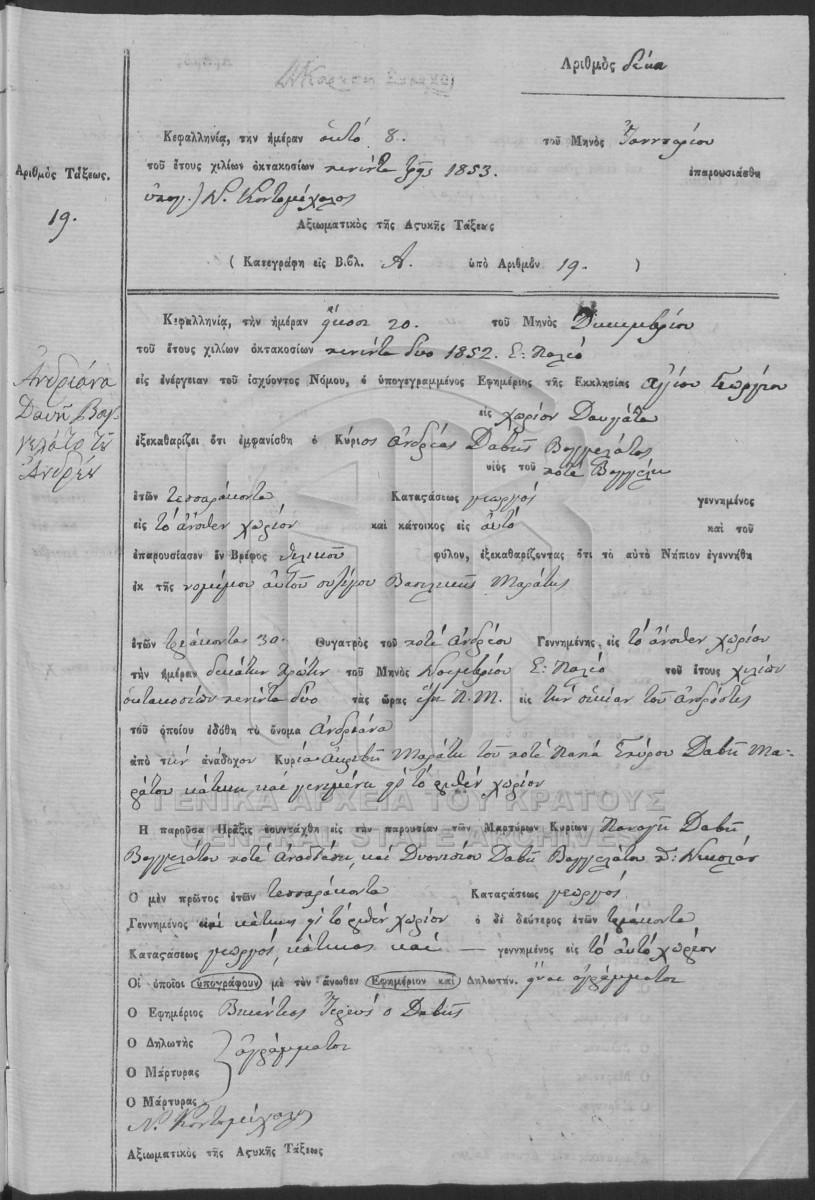 Ἀριθμὸς δέκα
Κεφαλληνία, την ἡμέραν ὀκτό 8. τοῦ Μηνὸς Ἰαννουαρίου
Ἀριθμὸς Τάξεως.
19.
τοῦ ἔτους χιλίων ὀκτακοσίων πενῆντα τρῆς 1853. ἐπαρουσιάσθη
ὑπογ.) Ν. Κοντομίχαλος
Ἀξιωματικὸς τῆς Ἀςυκῆς Τάξεως
( Κατεγράφη εἰς Βιβλ. Α. ὑπὸ Ἀριθμὸν 19. )
Κεφαλληνία, τὴν ἡμέραν ἤκοσι 20. τοῦ Μηνὸς Δικεμβρίου
τοῦ ἔτους χιλίων ὀκτακοσίων πενῆντα δύο 1852. Ε: Παλεό
εἰς ἐνέργειαν τοῦ ἰσχύοντος Νόμου, ὁ ὑπογεγραμμένος Ἐφημέριος τῆς Ἐκκλησίας Ἁγίου Γεωργίου
εἰς χωρίον Δαυγάτα
Ἀνδριάνα
Δαυῆ Βαγ
γελάτο τοῦ
Ἀνδρέα
ἐξεκαθαρίζει ὅτι ἐμφανίσθη ὁ Κύριος Ἀνδρέας Δαβῆς Βαγγελάτος
υἱὸς τοῦ ποτέ Βαγγέλη
ἐτῶν τεσσαράκοντα Καταςάσεως γεωργός γεννημένος
εἰς τό ἄνοθεν χωρίον καὶ κάτοικος εἰς αὐτό καὶ τοῦ
ἐπαρουσίασεν ἓν Βρέφος θηλικοῦ φύλου, ἐξεκαθαρίζοντας ὅτι τὸ αὐτὸ Νήπιον ἐγεννήθη
ἐκ τῆς νομίμου αὐτοῦ συζύγου Βασιλικῆς Μαράτης
ἐτῶν τριάκοντα 30. Θυγατρὸς τοῦ ποτέ Ἀνδρέου Γεννημένης εἰς τό ἄνοθεν χωρίον
τὴν ἡμέραν δεκάτην πρώτην τοῦ Μηνὸς Νοεμβρίου Ε: Παλεό τοῦ ἔτους χιλίων
ὀκτακοσίων πενῆντα δύο τὰς ὥρας ἕξη Π.Μ. εἰς τήν οἰκίαν τοῦ ἀνδρός της
τοῦ ὁποίου ἐδόθη τὸ ὄνομα Ἀνδριάνα
ἀπὸ τήν ἀνάδοχον Κυρία Μαράτη τοῦ ποτέ παπά Σπύρου Δαβῆ Μα-
ράτου κάτικη καί γενιμένη ἠς τό ῥιθέν χωρίον
ΓΕΝΙΚΑ ΑΡΧΕΙΑ ΤΟΥ ΚΡΑΤΟΥΣ
GENERAL STATE ARCHIVES
Ἡ παροῦσα Πρᾶξις ἐσυντάχθη εἰς τὴν παρουσίαν τῶν Μαρτύρων Κυρίων Παναγῆ Δαβῆ
Βαγγελάτου ποτέ Ἀναστάση, καί Διονισίου Δαβῆ Βαγγελάτου π: Νικολάου
Ὁ μὲν πρῶτος ἐτῶν τεσσαράκοντα Καταςάσεως γεωργός
Γεννημένος καί κάτικος ἠς τό ῥιθέν χωρίον ὁ δὲ δεύτερος ἐτῶν τριάκοντα
Καταςάσεως γεωργός, κάτικος καί γεννημένος εἰς τό αὐτό χωρίον
Οἱ ὁποῖοι ὑπογράφουν μὲ τὸν ἄνωθεν Ἐφημέριον καὶ Δηλωτήν. ἦναι ἀγράμματοι
Ὁ Ἐφημέριος Βικέντιος Ἱερεύς ὁ Δαβῆς
Ὁ Δηλωτὴς
ἀγράμματοι
Ὁ Μάρτυρας
Ὁ Μάρτυρας
Ν. Κοντομίχαλος
Ἀξιωματικὸς τῆς Ἀςυκῆς Τάξεως